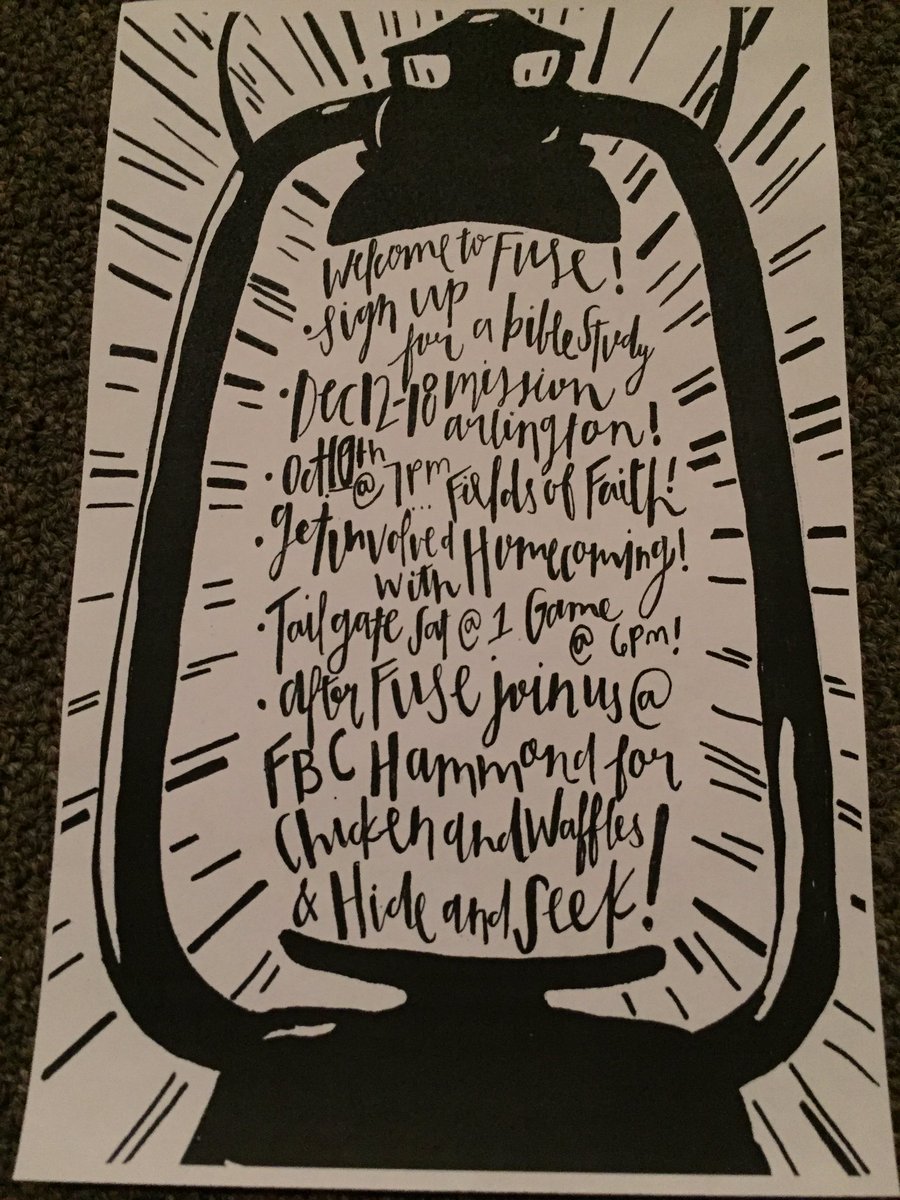 Welcome to Fuse!
• sign up
for a bible Study
• Dec 12-18 mission
arlington!
• Oct 10th
@ 7pm... Fields of Faith!
• get involved
with Homecoming!
• Tailgate Sat @ 1 Game
@ 6pm!
• after Fuse join us @
FBC Hammond for
Chicken and Waffles
& Hide and Seek!